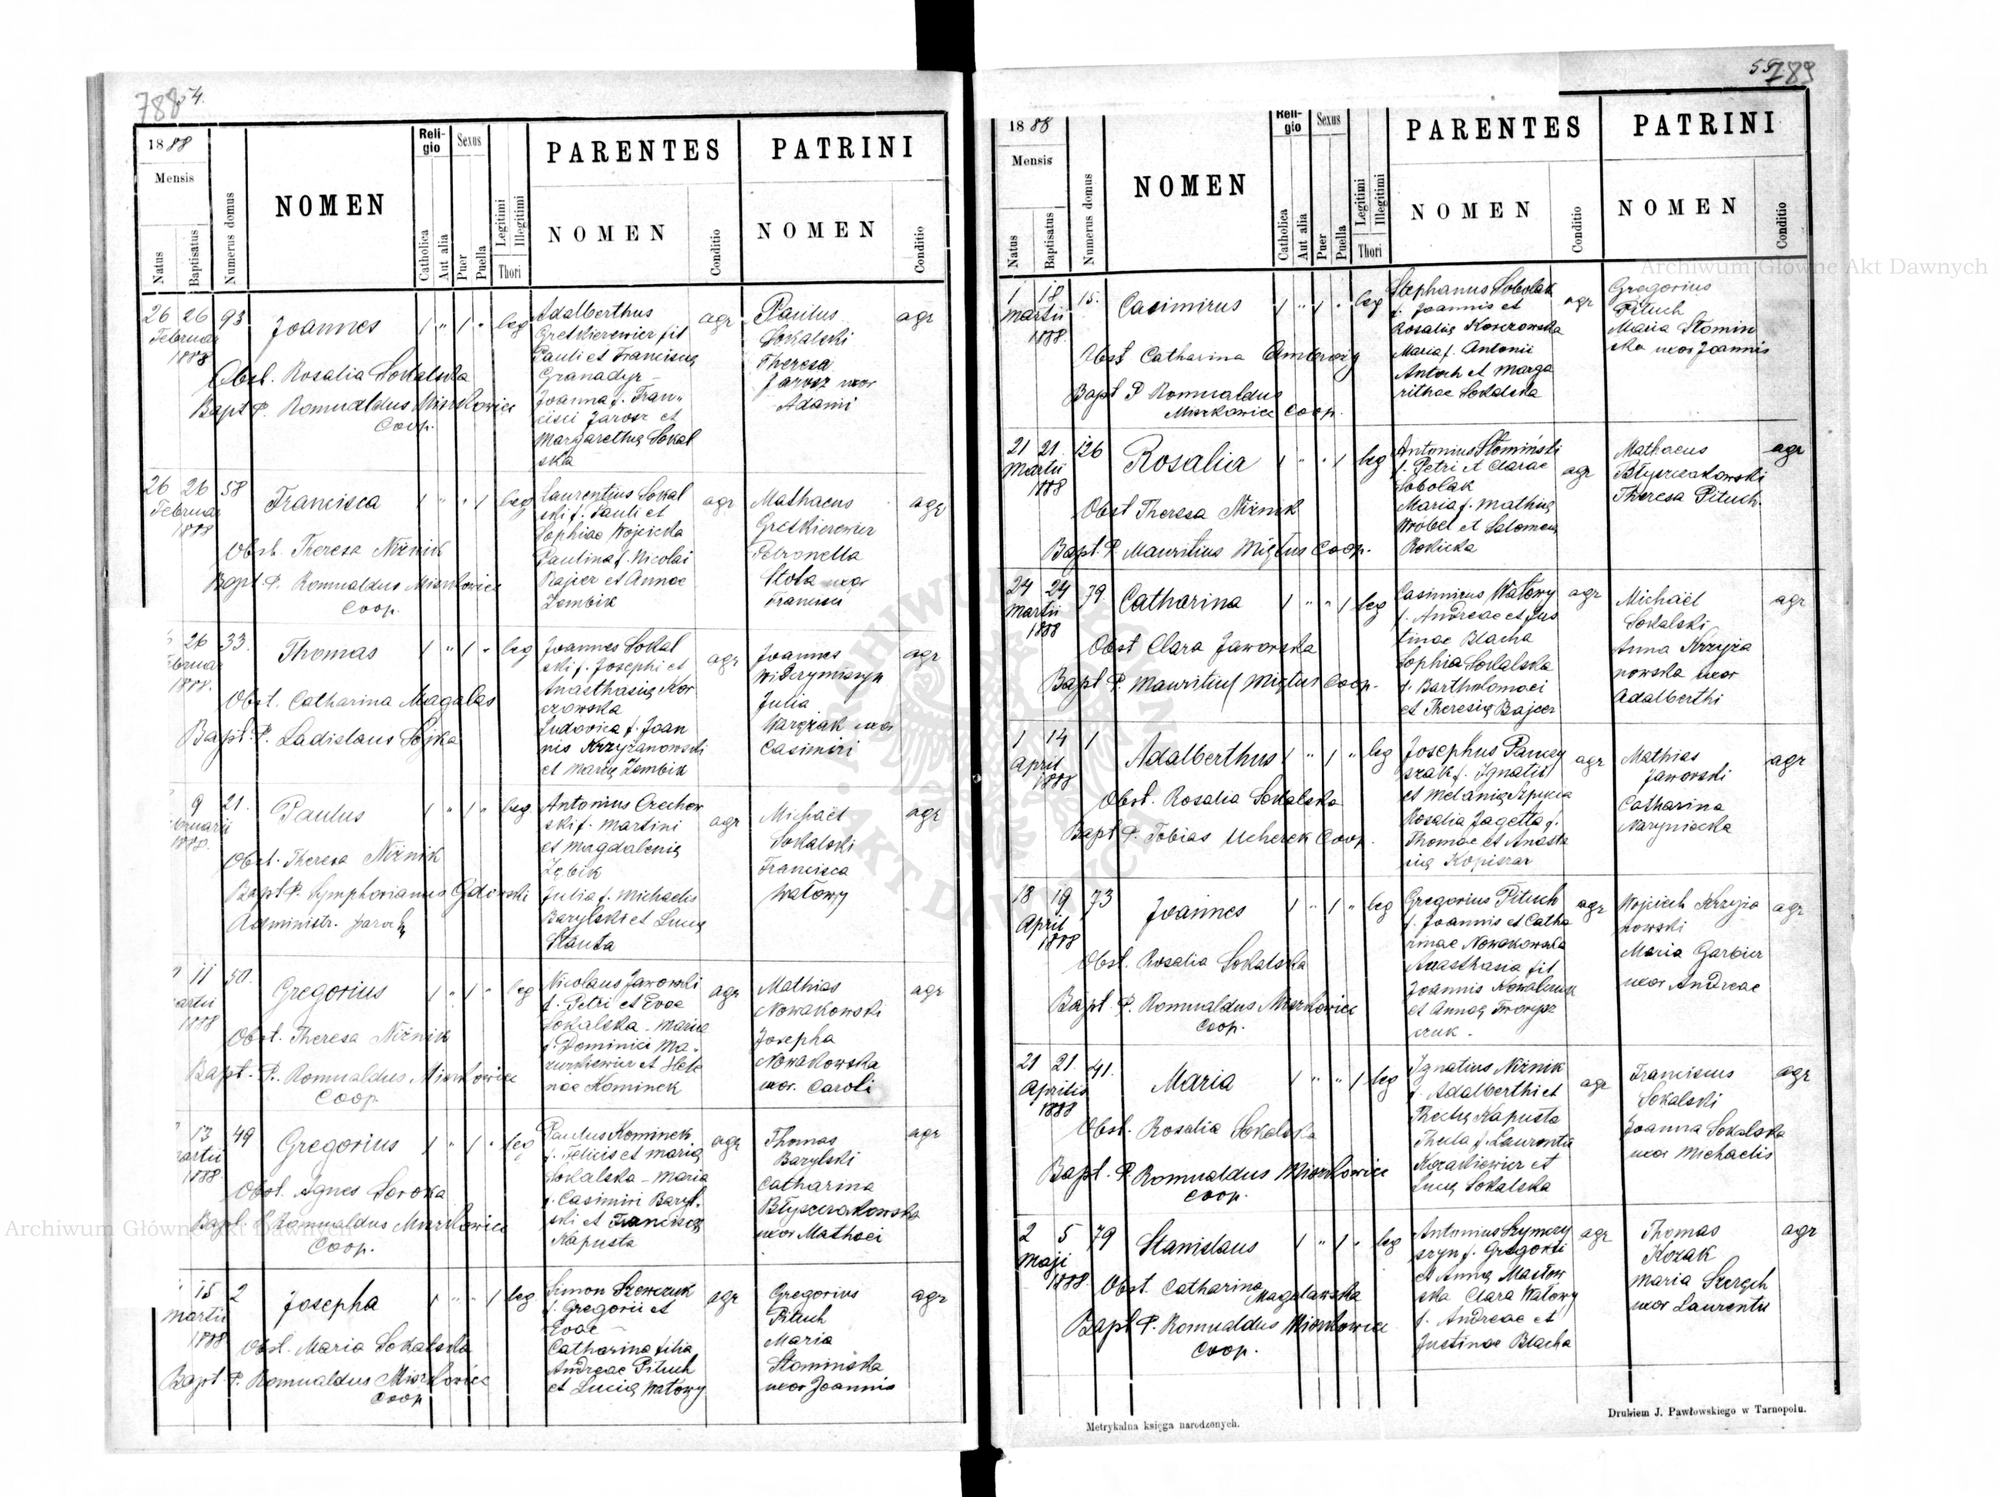 788 54.
1888
Mensis
Natus
Baptisatus
Numerus domus
NOMEN
Reli-
gio
Catholica
Aut alia
Sexus
Puer
Puella
Legitimi
Illegitimi
Thori
PARENTES
NOMEN
Conditio
PATRINI
NOMEN
Conditio
26 26 93 Joannes 1 " 1 " leg
Februar
1888
Obst. Rosalia Sokalska
Bapt P. Romualdus Mionkowicz
Coop.
Adalberthus
Gretkierewier fil
Pauli et Francisca
Granadyr -
Joanna f. Fran-
cisci Jarosz et
Margaretha Sokal
ska
agr
Paulus
Sokalski
Theresa
Jarosz uxor
Adami
agr
26 26 58 Francisca 1 " " 1 leg
Februar
1888
Obst. Theresa Niżnik
Bapt P. Romualdus Mionkowicz
Coop.
Laurentius Sokal
ski f. Pauli et
Sophiae Wojcicka
Paulina f. Nicolai
Bajier et Annae
Zembik
agr
Mathaeus
Gretkierewier
Petronella
Stola uxor
Francisci
agr
26 33 Thomas 1 " 1 " leg
1888.
Obst. Catharina Magalas
Bapt. P. Ladislaus Sojka
Joannes Sokal
ski f. Josephi et
Anasthasia Kor
czowska
Ludovica f. Joan
nis Krzyżanowski
et Maria Zembik
agr
Joannes
Julia
uxor
Casimiri
agr
9 21. Paulus 1 " 1 " leg
1888.
Obst. Theresa Niżnik
Bapt P. Symphorianus
Administr.
Antonius Orechow
ski f. Martini
et Magdalenia
Zębik
Julia f. Michaelis
Barylski et Lucia
Stańta
agr
Michael
Sokalski
Francisca
Watowy
agr
11 50. Gregorius 1 " 1 " leg
1888
Obst. Theresa Niżnik
Bapt. P. Romualdus Mionkowicz
Coop
Nicolaus Jaworski
f. Petri et Evae
Sokalska - Maria
f. Dominici Ma-
zurkiewicz et Hele
nae Kominek
agr
Mathias
Nowakowski
Josepha
Nowakowska
uxor. Caroli
agr
13 49 Gregorius 1 " 1 " leg
1888
Obst. Agnes Soroka
Bapt. P. Romualdus Mionkowicz
Coop.
Paulus Kominek
f. Felicis et Maria
Sokalska - Maria
f. Casimiri Baryl-
ski et Francisca
Kapusta
agr
Thomas
Barylski
Catharina
Błyszczakowska
uxor Mathaei
agr
15 2 Josepha 1 " " 1 leg
Martii
1888
Obst. Maria Sokalska
Bapt P. Romualdus Mionkowicz
Coop
Simon Szewczuk
f. Gregorii et
Evae -
Catharina filia
Andreae Pituch
et Lucia Watowy
agr
Gregorius
Pituch
Maria
Słomińska
uxor Joannis
agr
55. 789
1888
Mensis
Natus
Baptisatus
Numerus domus
NOMEN
Reli-
gio
Catholica
Aut alia
Sexus
Puer
Puella
Legitimi
Illegitimi
Thori
PARENTES
NOMEN
Conditio
PATRINI
NOMEN
Conditio
1 18 15. Casimirus 1 " 1 " leg
Martii
1888.
Obst Catharina
Bapt P Romualdus
Mionkowicz Coop.
Stephanus Sobolak
f. Joannis et
Rosalia Korczowska
Maria f. Antonii
Antoch et Marga
rithae Sokalska
agr
Gregorius
Pituch
Maria Słomin
ska uxor Joannis
21 21 126 Rosalia 1 " " 1 leg
Martii
1888
Obst Theresa Niżnik
Bapt. P. Mauritius Miętus Coop.
Antonius Słomiński
f. Petri et Clarae
Sobolak
Maria f. Mathia
Wróbel et Salomea
Rokicka
agr
Mathaeus
Błyszczakowski
Theresa Pituch.
agr
24 24 79 Catharina 1 " " 1 leg
Martii
1888
Obst Clara Jaworska
Bapt P. Mauritius Miętus Coop.
Casimirus Watowy
f. Andreae et Jus
tinae Blacha
Sophia Sokalska
f. Bartholomaei
et Theresia Bajcer
agr
Michaël
Sokalski
Anna Krzyża
nowska uxor
Adalberthi
agr
1 14 1 Adalberthus 1 " 1 " leg
April
1888
Obst. Rosalia Sokalska
Bapt P. Tobias Ucherek Coop.
Josephus Pańczy
szak f. Ignatii
et Melania Szpyria
Rosalia Jagetta f.
Thomae et Anasta
sia Kopiszar
agr
Mathias
Jaworski
Catharina
Naryniecka
agr
18 19 73 Joannes 1 " 1 " leg
April
1888
Obst. Rosalia Sokalska
Bapt P. Romualdus Mionkowicz
Coop.
Gregorius Pituch
f. Joannis et Catha
rinae Nowakowska
Anasthasia fil
Joannis Kowalczuk
et Anna
czuk.
agr
Wojciech Krzyża
nowski
Maria Garbier
uxor Andreae
agr
21 21 41. Maria 1 " " 1 leg
Aprilis
1888
Obst. Rosalia Sokalska
Bapt. P. Romualdus Mionkowicz
Coop.
Ignatius Niżnik
f. Adalberthi et
Thecla Kapusta
Thecla f. Laurentii
Kozarkiewicz et
Lucia Sokalska
agr
Franciscus
Sokalski
Joanna Sokalska
uxor Michaelis
agr
2 5 79 Stanislaus 1 " 1 " leg
Maji
1888
Obst. Catharina
Magalawska
Bapt P. Romualdus Mionkowicz
Coop.
Antonius Szymczy
szyn f. Gregorii
et Anna Masłow
ska Clara Watowy
f. Andreae et
Justinae Blacha
agr
Thomas
Kozak
Maria Szergeh
uxor Laurentii
agr
Metrykalna księga narodzonych.
Drukiem J. Pawłowskiego w Tarnopolu.
Archiwum Główne Akt Dawnych
Archiwum Główne Akt Dawnych